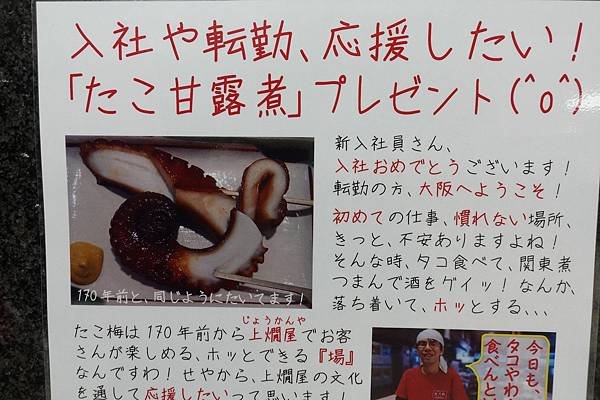 入社や転勤、応援したい！
「たこ甘露煮」プレゼント(^o^)
新入社員さん、
入社おめでとうございます！
転勤の方、大阪へようこそ！
初めての仕事、慣れない場所、
きっと、不安ありますよね！
そんな時、タコ食べて、関東煮
つまんで酒をグイッ！なんか、
落ち着いて、ホッとする、、、
170年前と、同じようにたいてます！
じょうかんや
たこ梅は170年前から上燗屋でお客
さんが楽しめる、ホッとできる『場』
なんですわ！せやから、上燗屋の文化
を通して応援したいって思います！
今日も、
タコやわ
食べんと